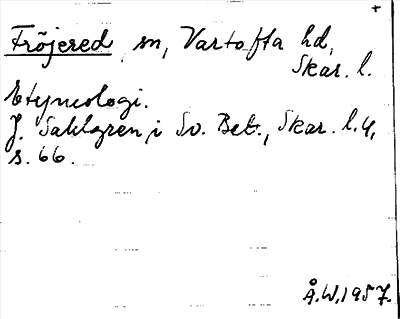 +
Fröjered sn, Vartofta hd,
Skar. l.
Etymologi.
J. Sahlgren, i Sv. Bet., Skar. l. 4,
s. 66.
Å.W. 1957.